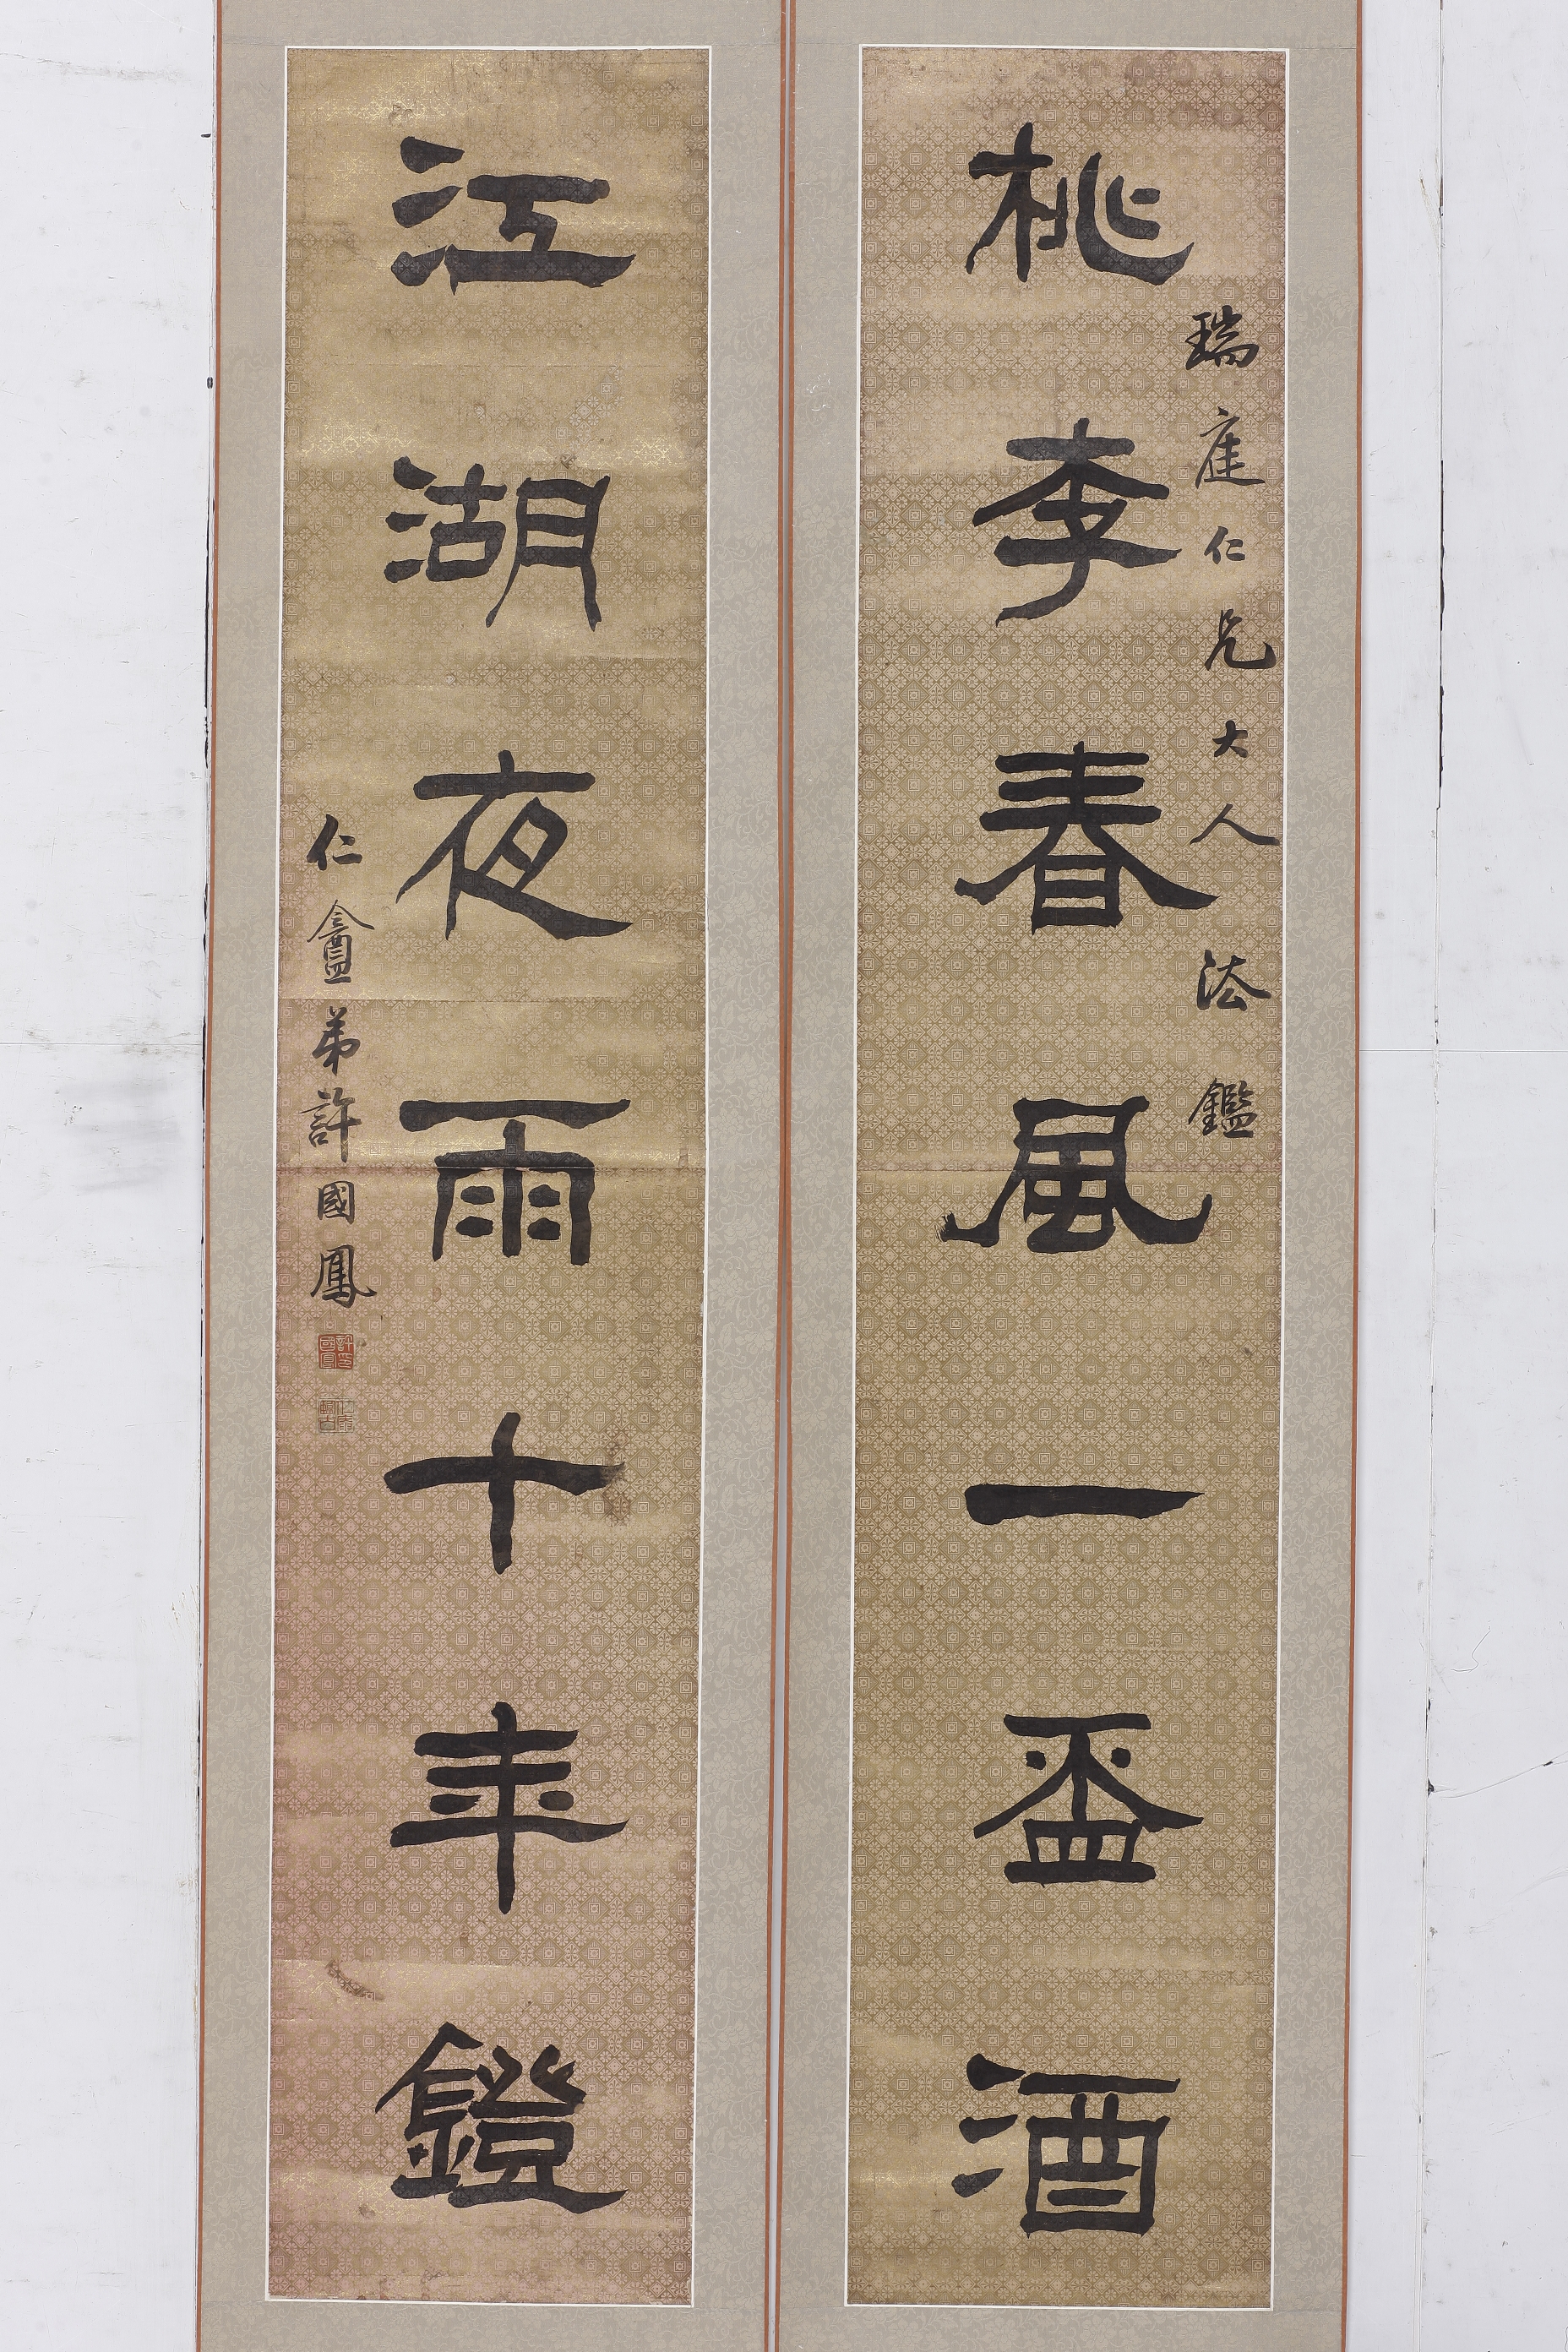 瑞庭仁兄大人法鑑
桃李春風一盃酒
江湖夜雨十年鐙
仁盦弟許國鳳